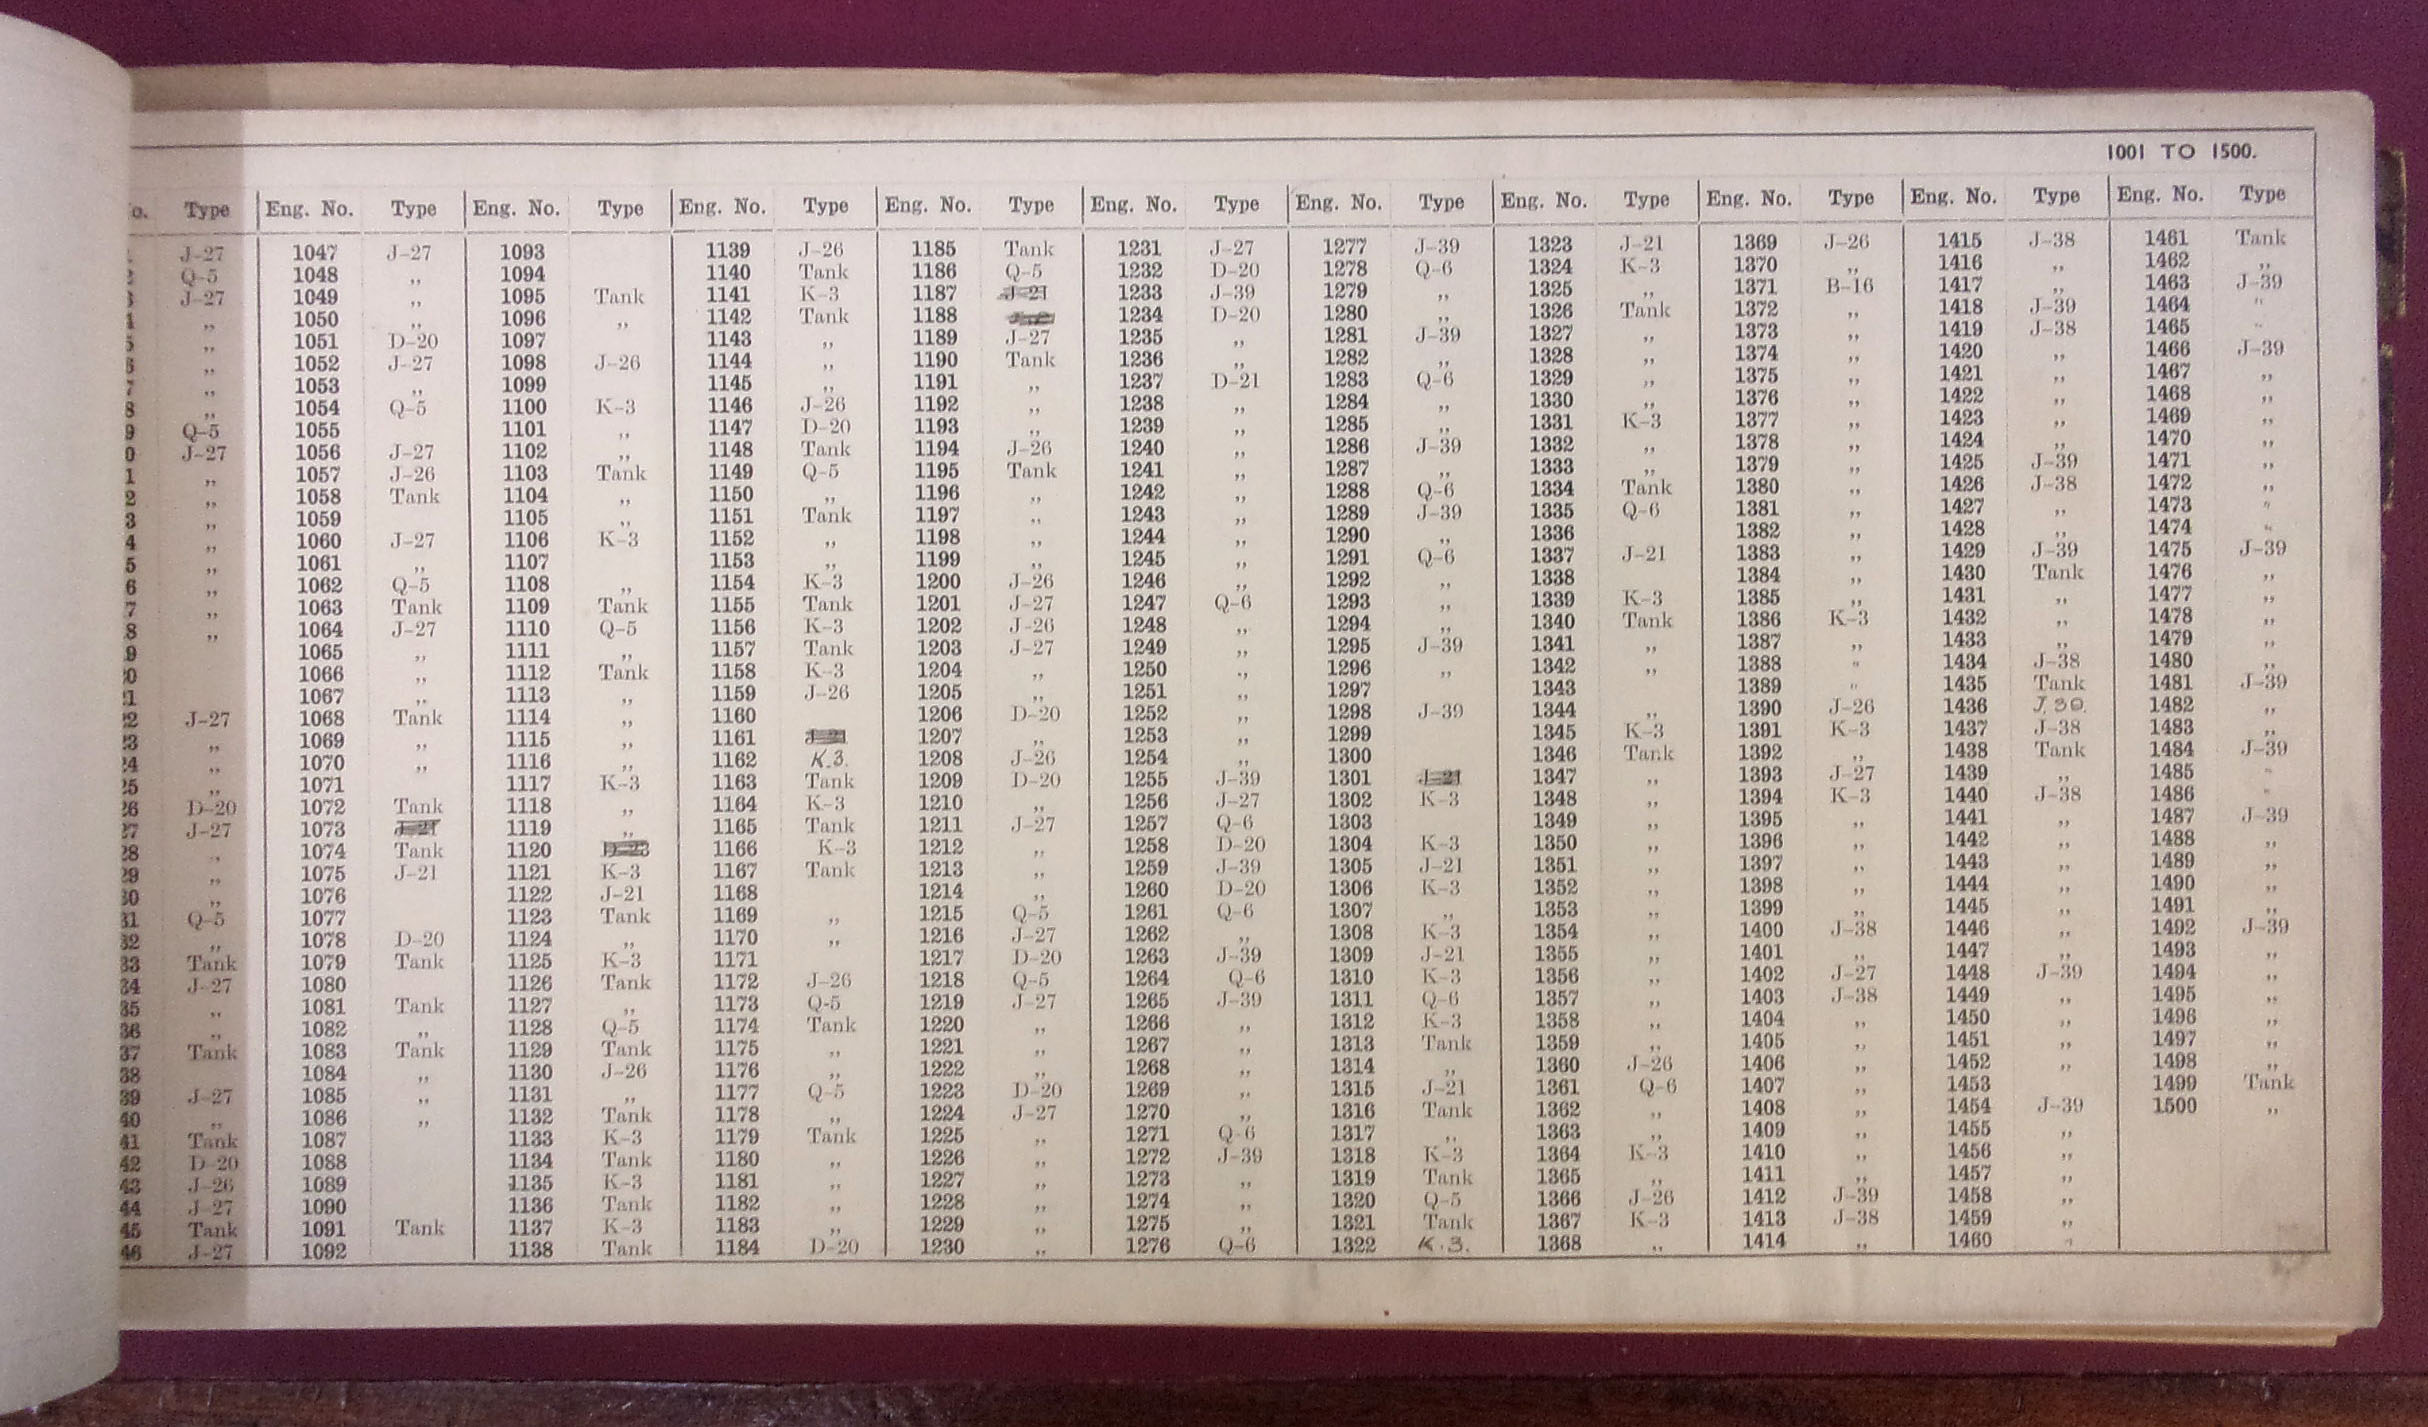 1001 TO 1500.
o. Type Eng. No. Type Eng. No. Type Eng. No. Type Eng. No. Type Eng. No. Type Eng. No. Type Eng. No. Type Eng. No. Type Eng. No. Type Eng. No. Type
1 J-27 1047 J-27 1093 1139 J-26 1185 Tank 1231 J-27 1277 J-39 1323 J-21 1369 J-26 1415 J-38 1461 Tank
2 Q-5 1048 ,, 1094 1140 Tank 1186 Q-5 1232 D-20 1278 Q-6 1324 K-3 1370 ,, 1416 ,, 1462 ,,
3 J-27 1049 ,, 1095 Tank 1141 K-3 1187 J-21 1233 J-39 1279 ,, 1325 ,, 1371 B-16 1417 ,, 1463 J-39
4 ,, 1050 ,, 1096 ,, 1142 Tank 1188 1234 D-20 1280 ,, 1326 Tank 1372 ,, 1418 J-39 1464 "
5 ,, 1051 D-20 1097 1143 ,, 1189 J-27 1235 ,, 1281 J-39 1327 ,, 1373 ,, 1419 J-38 1465 "
6 ,, 1052 J-27 1098 J-26 1144 ,, 1190 Tank 1236 ,, 1282 ,, 1328 ,, 1374 ,, 1420 ,, 1466 J-39
7 ,, 1053 ,, 1099 1145 ,, 1191 ,, 1237 D-21 1283 Q-6 1329 ,, 1375 ,, 1421 ,, 1467 ,,
8 ,, 1054 Q-5 1100 K-3 1146 J-26 1192 ,, 1238 ,, 1284 ,, 1330 ,, 1376 ,, 1422 ,, 1468 ,,
9 Q-5 1055 1101 ,, 1147 D-20 1193 ,, 1239 ,, 1285 ,, 1331 K-3 1377 ,, 1423 ,, 1469 ,,
0 J-27 1056 J-27 1102 ,, 1148 Tank 1194 J-26 1240 ,, 1286 J-39 1332 ,, 1378 ,, 1424 ,, 1470 ,,
1 ,, 1057 J-26 1103 Tank 1149 Q-5 1195 Tank 1241 ,, 1287 ,, 1333 ,, 1379 ,, 1425 J-39 1471 ,,
2 ,, 1058 Tank 1104 ,, 1150 ,, 1196 ,, 1242 ,, 1288 Q-6 1334 Tank 1380 ,, 1426 J-38 1472 ,,
3 ,, 1059 1105 ,, 1151 Tank 1197 ,, 1243 ,, 1289 J-39 1335 Q-6 1381 ,, 1427 ,, 1473 "
4 ,, 1060 J-27 1106 K-3 1152 ,, 1198 ,, 1244 ,, 1290 ,, 1336 1382 ,, 1428 ,, 1474 "
5 ,, 1061 ,, 1107 1153 ,, 1199 ,, 1245 ,, 1291 Q-6 1337 J-21 1383 ,, 1429 J-39 1475 J-39
6 ,, 1062 Q-5 1108 ,, 1154 K-3 1200 J-26 1246 ,, 1292 ,, 1338 1384 ,, 1430 Tank 1476 ,,
7 ,, 1063 Tank 1109 Tank 1155 Tank 1201 J-27 1247 Q-6 1293 ,, 1339 K-3 1385 ,, 1431 ,, 1477 ,,
8 ,, 1064 J-27 1110 Q-5 1156 K-3 1202 J-26 1248 ,, 1294 ,, 1340 Tank 1386 K-3 1432 ,, 1478 ,,
9 1065 ,, 1111 ,, 1157 Tank 1203 J-27 1249 ,, 1295 J-39 1341 ,, 1387 ,, 1433 ,, 1479 ,,
0 1066 ,, 1112 Tank 1158 K-3 1204 ,, 1250 ,, 1296 ,, 1342 ,, 1388 " 1434 J-38 1480 ,,
1 1067 ,, 1113 ,, 1159 J-26 1205 ,, 1251 ,, 1297 1343 1389 " 1435 Tank 1481 J-39
2 J-27 1068 Tank 1114 ,, 1160 1206 D-20 1252 ,, 1298 J-39 1344 ,, 1390 J-26 1436 J.39. 1482 ,,
23 ,, 1069 ,, 1115 ,, 1161 J-21 1207 ,, 1253 ,, 1299 1345 K-3 1391 K-3 1437 J-38 1483 ,,
24 ,, 1070 ,, 1116 ,, 1162 K.3. 1208 J-26 1254 ,, 1300 1346 Tank 1392 ,, 1438 Tank 1484 J-39
25 ,, 1071 1117 K-3 1163 Tank 1209 D-20 1255 J-39 1301 J-21 1347 ,, 1393 J-27 1439 ,, 1485 "
26 D-20 1072 Tank 1118 ,, 1164 K-3 1210 ,, 1256 J-27 1302 K-3 1348 ,, 1394 K-3 1440 J-38 1486 "
27 J-27 1073 J-21 1119 ,, 1165 Tank 1211 J-27 1257 Q-6 1303 1349 ,, 1395 ,, 1441 ,, 1487 J-39
28 ,, 1074 Tank 1120 D-23 1166 K-3 1212 ,, 1258 D-20 1304 K-3 1350 ,, 1396 ,, 1442 ,, 1488 ,,
29 ,, 1075 J-21 1121 K-3 1167 Tank 1213 ,, 1259 J-39 1305 J-21 1351 ,, 1397 ,, 1443 ,, 1489 ,,
30 ,, 1076 1122 J-21 1168 1214 ,, 1260 D-20 1306 K-3 1352 ,, 1398 ,, 1444 ,, 1490 ,,
31 Q-5 1077 1123 Tank 1169 ,, 1215 Q-5 1261 Q-6 1307 ,, 1353 ,, 1399 ,, 1445 ,, 1491 ,,
32 ,, 1078 D-20 1124 ,, 1170 ,, 1216 J-27 1262 ,, 1308 K-3 1354 ,, 1400 J-38 1446 ,, 1492 J-39
33 Tank 1079 Tank 1125 K-3 1171 1217 D-20 1263 J-39 1309 J-21 1355 ,, 1401 ,, 1447 ,, 1493 ,,
34 J-27 1080 1126 Tank 1172 J-26 1218 Q-5 1264 Q-6 1310 K-3 1356 ,, 1402 J-27 1448 J-39 1494 ,,
35 ,, 1081 Tank 1127 ,, 1173 Q-5 1219 J-27 1265 J-39 1311 Q-6 1357 ,, 1403 J-38 1449 ,, 1495 ,,
36 ,, 1082 ,, 1128 Q-5 1174 Tank 1220 ,, 1266 ,, 1312 K-3 1358 ,, 1404 ,, 1450 ,, 1496 ,,
37 Tank 1083 Tank 1129 Tank 1175 ,, 1221 ,, 1267 ,, 1313 Tank 1359 ,, 1405 ,, 1451 ,, 1497 ,,
38 1084 ,, 1130 J-26 1176 ,, 1222 ,, 1268 ,, 1314 ,, 1360 J-26 1406 ,, 1452 ,, 1498 ,,
39 J-27 1085 ,, 1131 ,, 1177 Q-5 1223 D-20 1269 ,, 1315 J-21 1361 Q-6 1407 ,, 1453 1499 Tank
40 ,, 1086 ,, 1132 Tank 1178 ,, 1224 J-27 1270 ,, 1316 Tank 1362 ,, 1408 ,, 1454 J-39 1500 ,,
41 Tank 1087 1133 K-3 1179 Tank 1225 ,, 1271 Q-6 1317 ,, 1363 ,, 1409 ,, 1455 ,,
42 D-20 1088 1134 Tank 1180 ,, 1226 ,, 1272 J-39 1318 K-3 1364 K-3 1410 ,, 1456 ,,
43 J-26 1089 1135 K-3 1181 ,, 1227 ,, 1273 ,, 1319 Tank 1365 ,, 1411 ,, 1457 ,,
44 J-27 1090 1136 Tank 1182 ,, 1228 ,, 1274 ,, 1320 Q-5 1366 J-26 1412 J-39 1458 ,,
45 Tank 1091 Tank 1137 K-3 1183 ,, 1229 ,, 1275 ,, 1321 Tank 1367 K-3 1413 J-38 1459 ,,
46 J-27 1092 1138 Tank 1184 D-20 1230 ,, 1276 Q-6 1322 K.3. 1368 ,, 1414 ,, 1460 "